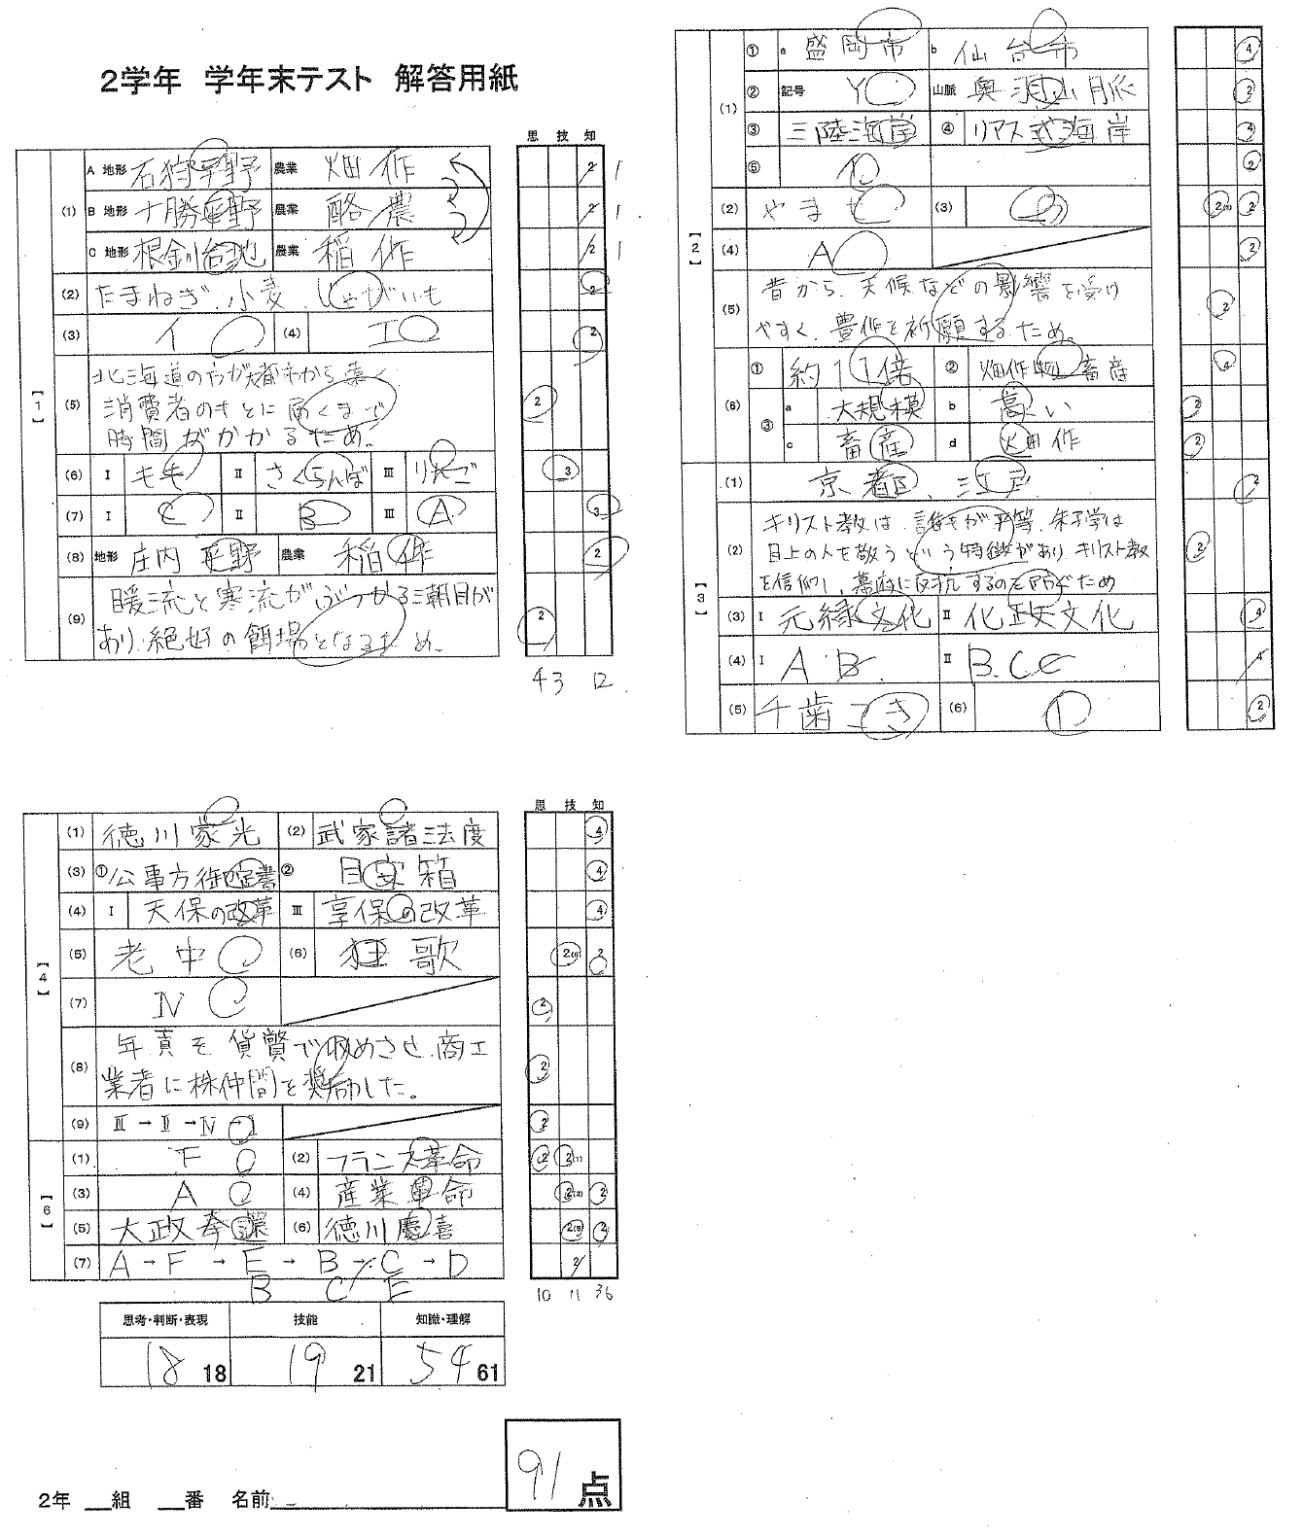 2学年 学年末テスト 解答用紙
思 技 知
【1】
(1) A 地形 石狩平野 農業 畑作 2 1
B 地形 十勝平野 農業 酪農 2 1
C 地形 根釧台地 農業 稲作 2 1
(2) たまねぎ、小麦、じゃがいも 2
(3) イ (4) エ 2
(5) 北海道の方が
消費者のもとに届くまで 2
時間がかかるため。
(6) Ⅰ もも Ⅱ さくらんぼ Ⅲ りんご 3
(7) Ⅰ C Ⅱ B Ⅲ A 3
(8) 地形 庄内平野 農業 稲作 2
(9) 暖流と寒流がぶつかる潮目が
あり、絶好の餌場となるため。 2
4 3 12
【2】
(1) ① a 盛岡市 b 仙台市 4
② 記号 Y 山脈 奥羽山脈 2
③ 三陸海岸 ④ リアス式海岸 4
⑤ 2
(2) やませ (3) あ 2 2
(4) A 2
(5) 昔から、天候などの影響を受け
やすく、豊作を祈願するため。 2
(6) ① 約11倍 ② 畑作 畜産 4
③ a 大規模 b 高い 2
c 畜産 d 畑作 2
【3】
(1) 京都、江戸 2
(2) キリスト教は、誰もが平等、朱子学は
目上の人を敬うという特徴があり、キリスト教 2
を信仰し、幕府に反抗するのを防ぐため
(3) Ⅰ 元禄文化 Ⅱ 化政文化 4
(4) Ⅰ A B Ⅱ B.C 4
(5) 千歯こき (6) 2
思 技 知
【4】
(1) 徳川家光 (2) 武家諸法度 4
(3) ① 公事方御定書 ② 目安箱 4
(4) Ⅰ 天保の改革 Ⅲ 享保の改革 4
(5) 老中 (6) 狂歌 2 2
(7) Ⅳ 2
(8) 年貢を貨幣で収めさせ、商工
業者に株仲間を奨励した。 2
(9) Ⅲ → Ⅱ → Ⅳ → Ⅰ 2
【6】
(1) F (2) フランス革命 2 2
(3) A (4) 産業革命 2 2
(5) 大政奉還 (6) 徳川慶喜 2 2
(7) A → F → E → B → C → D 2
B C E
10 11 36
思考・判断・表現 技能 知識・理解
18 18 19 21 54 61
2年 __組 __番 名前
91 点